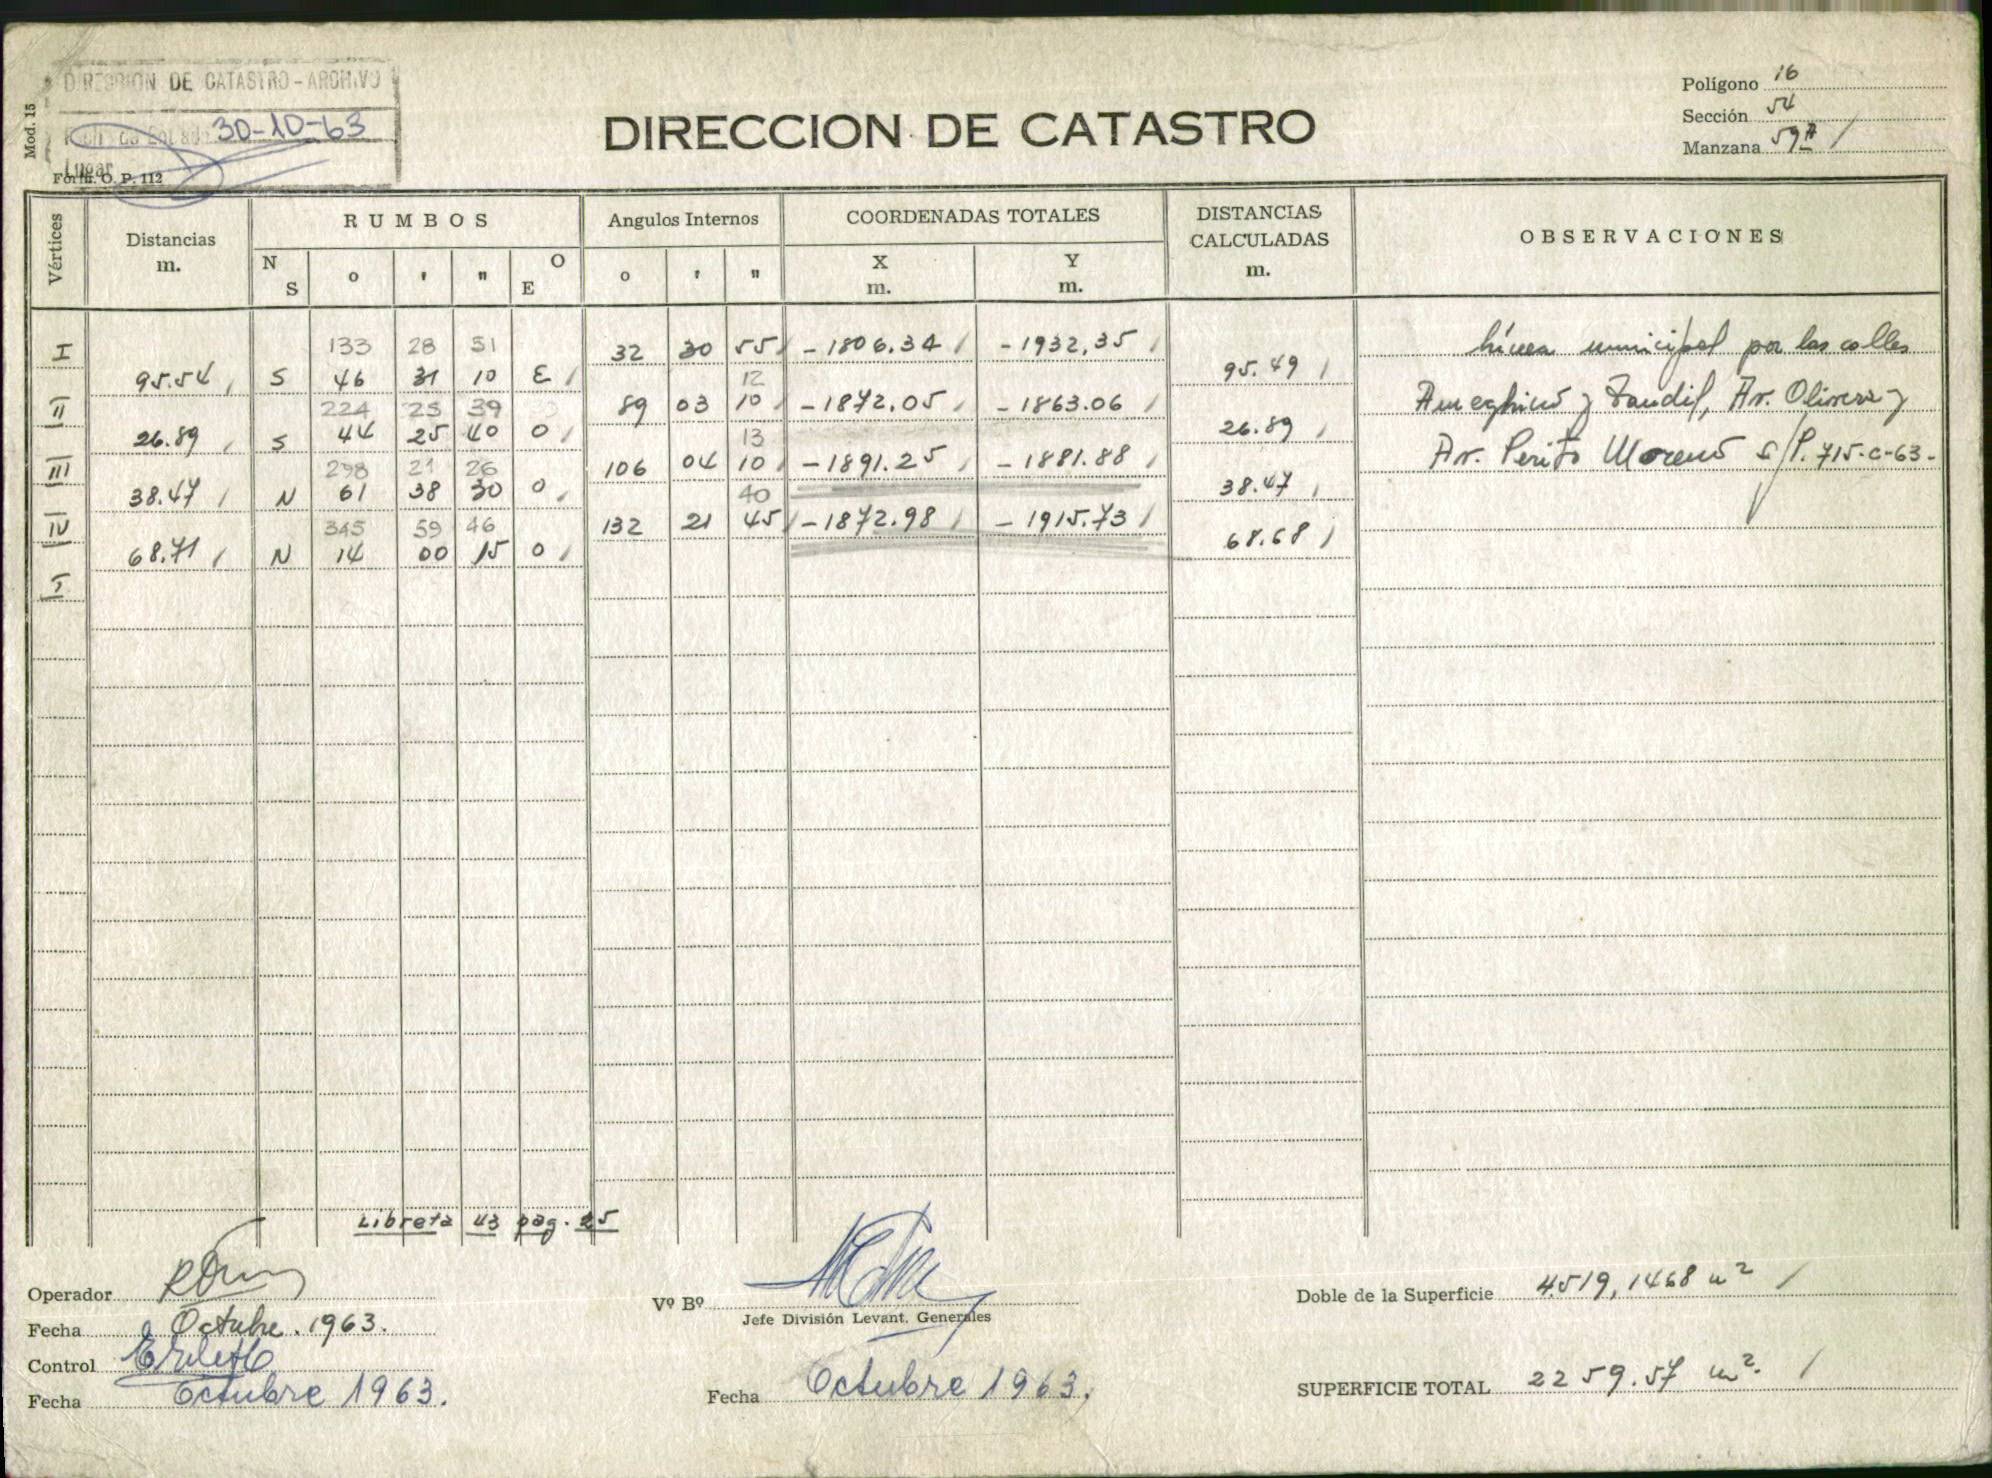 DIRECCION DE CATASTRO - ARCHIVO
30-10-63
Lugar
Mod. 15
Form. O. P. 112
DIRECCION DE CATASTRO
Polígono 16
Sección 54
Manzana 59A /
Vértices
Distancias m.
RUMBOS
N S ° ' " O E
Angulos Internos
° ' "
COORDENADAS TOTALES
X m. Y m.
DISTANCIAS CALCULADAS m.
OBSERVACIONES
I 133 28 51 32 30 55 / -1806.34 / -1932,35 /
95.54 / S 46 31 10 E / 95.49 /
12
II 224 25 39 89 03 10 / -1872.05 / -1863.06 /
26.89 / S 44 25 40 O / 26.89 /
13
III 298 21 26 106 04 10 / -1891.25 / -1881.88 /
38.47 / N 61 38 30 O / 38.47 /
40
IV 345 59 46 132 21 45 / -1872.98 / -1915.73 /
68.71 / N 14 00 15 O / 68.68 /
I
Línea municipal por las calles
Ameghino y Tandil, Av. Olivera y
Av. Perito Moreno s/P. 715-C-63.
Libreta 43 pag. 25
Operador
Fecha Octubre. 1963.
Control
Fecha Octubre 1963.
Vº Bº
Jefe División Levant. Generales
Fecha Octubre 1963.
Doble de la Superficie 4519,1468 m² /
SUPERFICIE TOTAL 2259.57 m². /